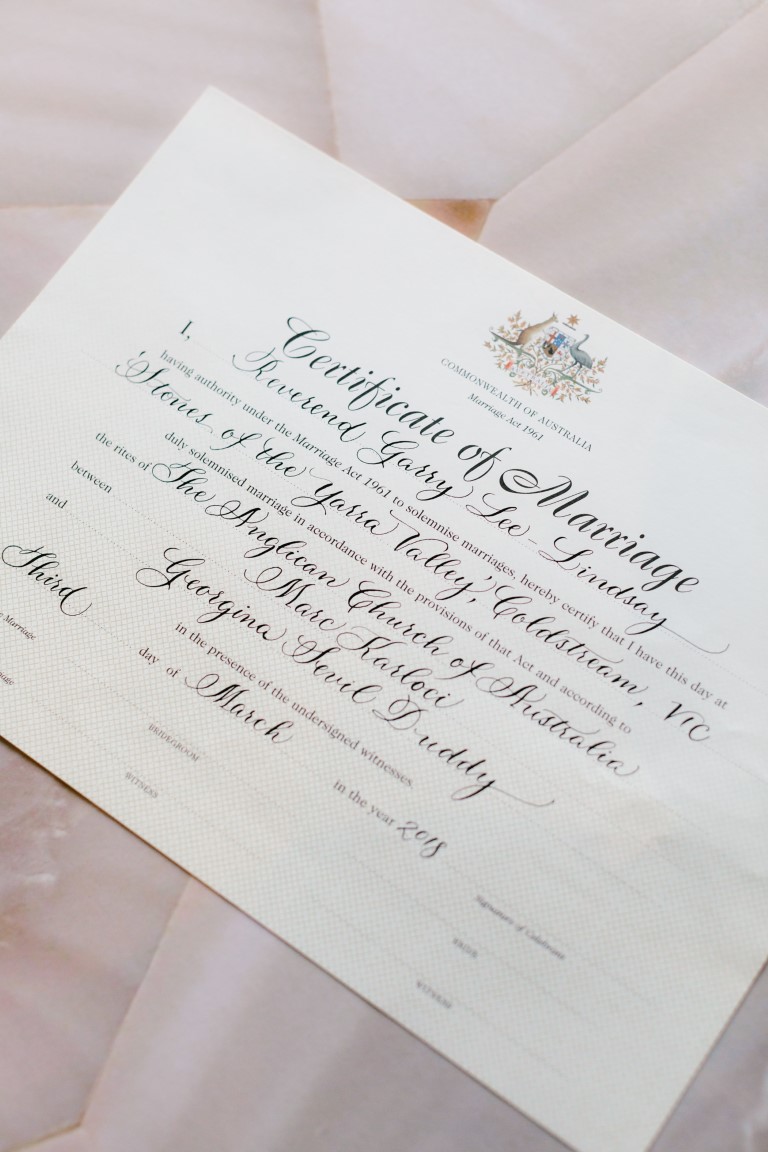 COMMONWEALTH OF AUSTRALIA
Marriage Act 1961
Certificate of Marriage
I, Reverend Garry Lee-Lindsay
having authority under the Marriage Act 1961 to solemnise marriages, hereby certify that I have this day at
'Stones of the Yarra Valley', Coldstream, VIC
duly solemnised marriage in accordance with the provisions of that Act and according to
the rites of The Anglican Church of Australia
between Marc Karloci
and Georgina Sevil Duddy
in the presence of the undersigned witnesses.
Third day of March in the year 2018
Marriage
Signature of Celebrant
BRIDEGROOM
BRIDE
WITNESS
WITNESS